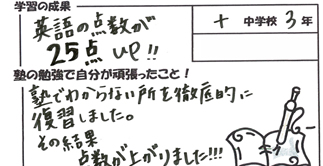 学習の成果
英語の点数が
25点 up!!
中学校 3年
塾の勉強で自分が頑張ったこと!
塾でわからない所を徹底的に
復習しました。
その結果
点数が上がりました!!!